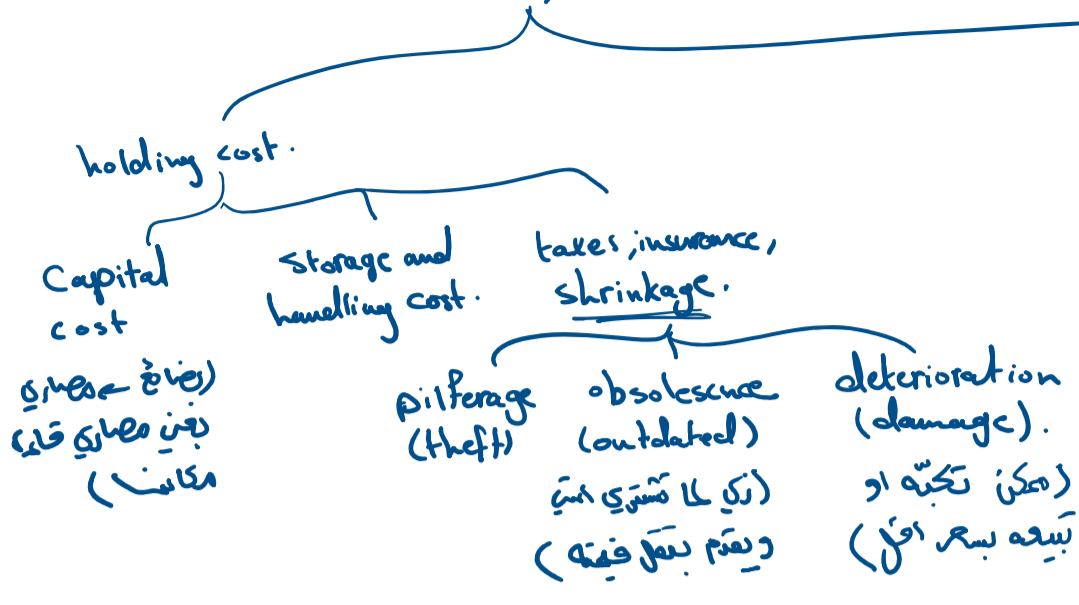 holding cost.
Capital
cost
(بضائع ← مصاري
يعني مصاري قاعدة
مكانها)
storage and
handling cost.
taxes, insurance,
shrinkage.
pilferage
(theft)
obsolescence
(outdated)
(زي لما تشتري اشي
ويقدم بتقل قيمته)
deterioration
(damage).
(ممكن تكبّه او
تبيعه بسعر اقل)